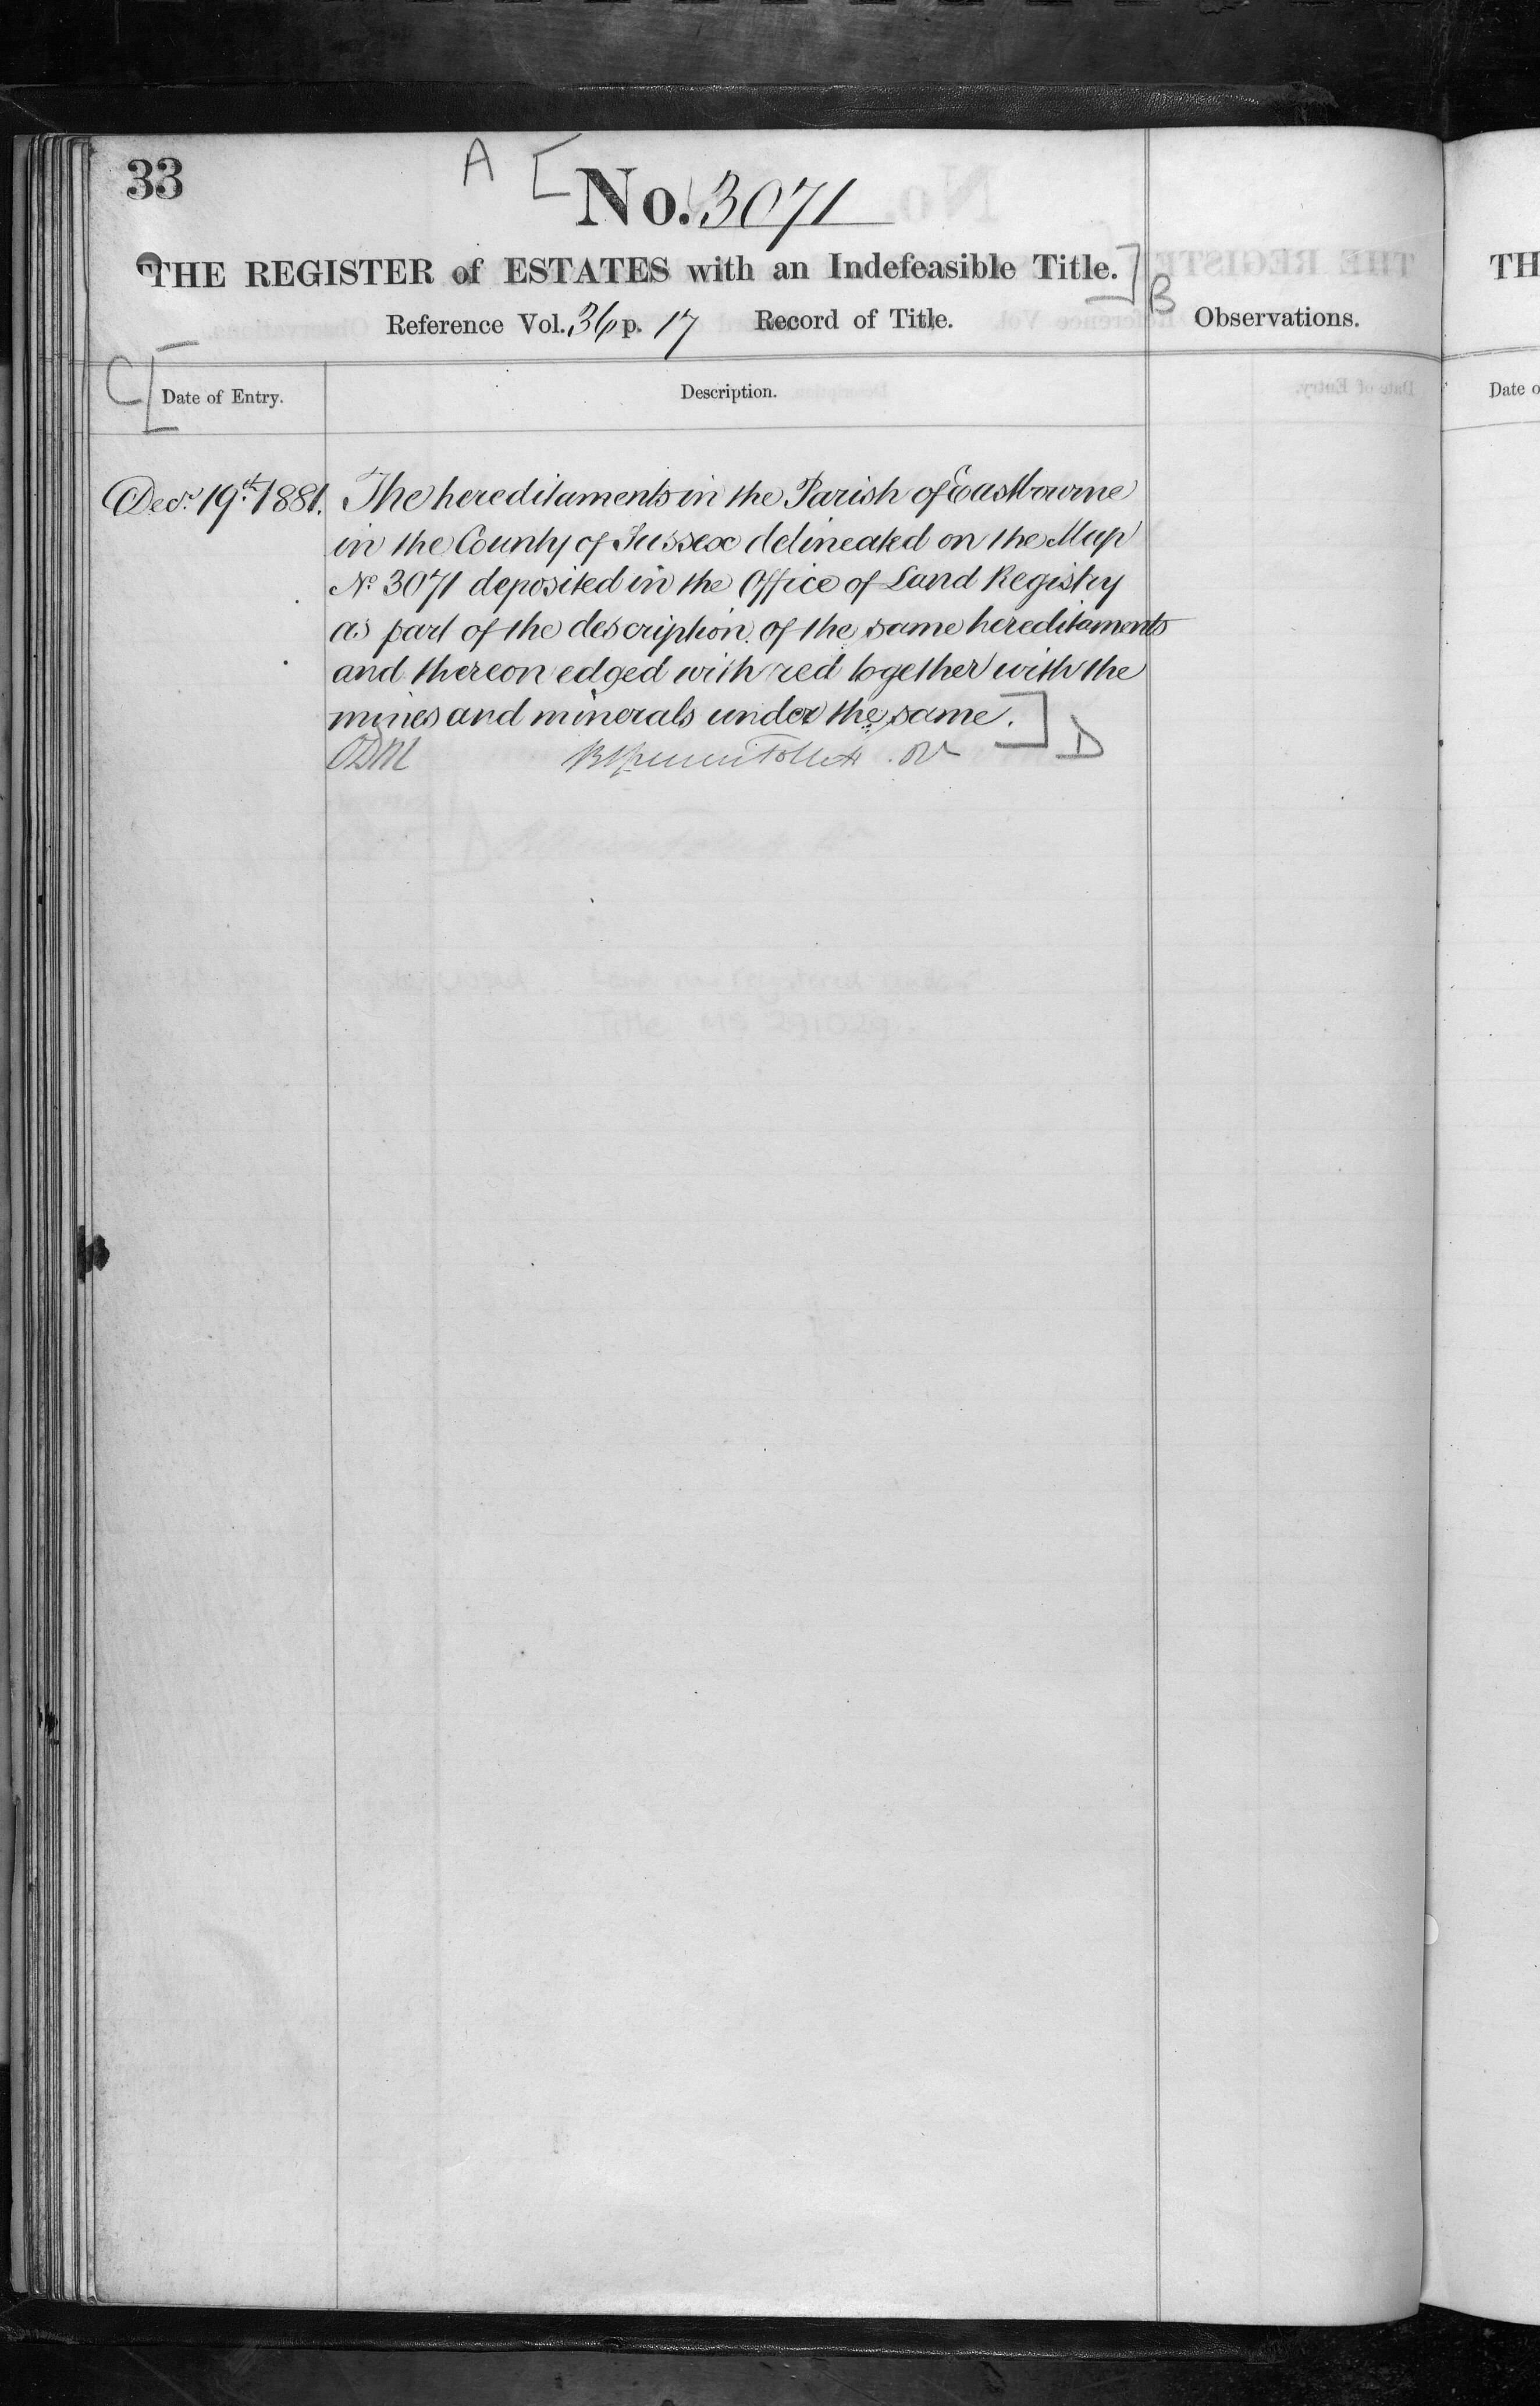 33
A [
No. 3071
THE REGISTER of ESTATES with an Indefeasible Title. ] B
Reference Vol. 36 p. 17 Record of Title.
Observations.
C [
Date of Entry.
Description.
Decr. 19th. 1881.
The hereditaments in the Parish of Eastbourne
in the County of Sussex delineated on the Map
No. 3071 deposited in the Office of Land Registry
as part of the description of the same hereditaments
and thereon edged with red together with the
mines and minerals under the same. ] D
TH
Date o